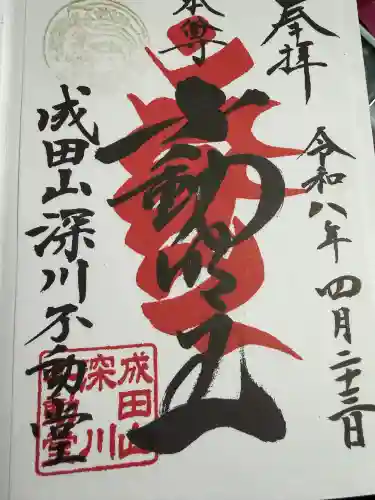 奉拝
令和八年四月二十三日
本尊
不動明王
成田山深川不動堂
成田山
深川
不動堂